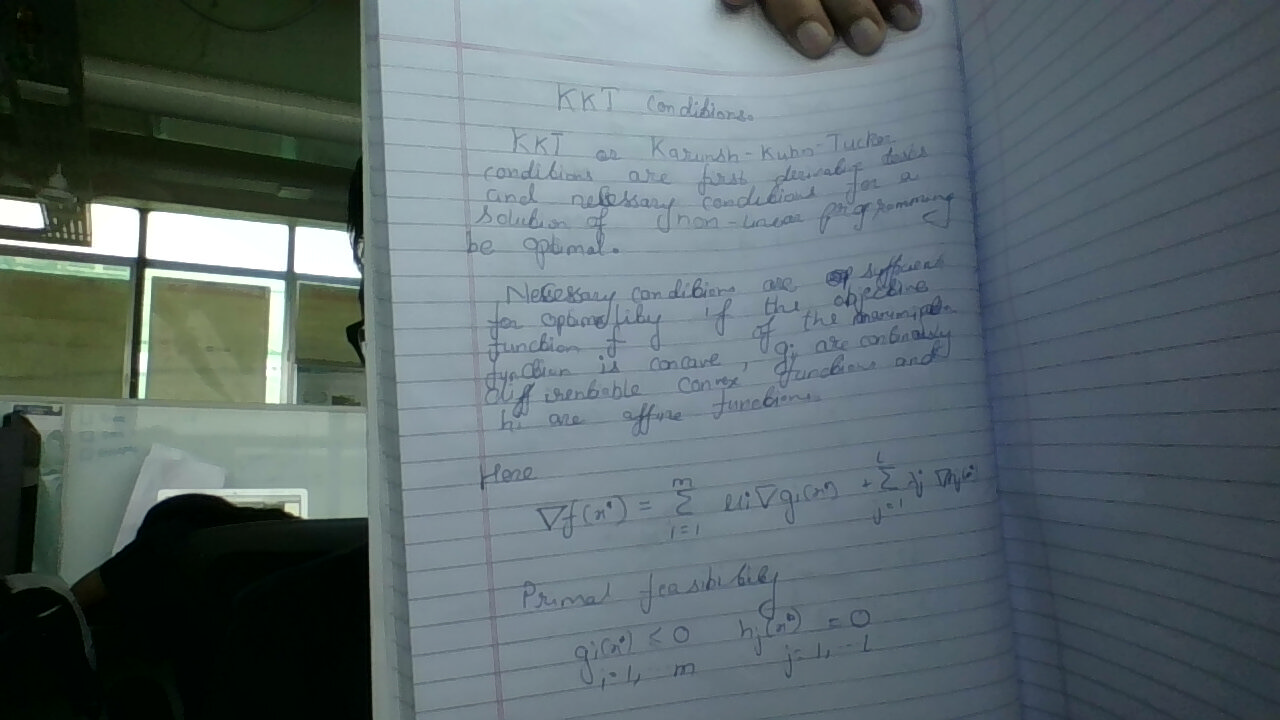 KKT Conditions.
KKT or Karunsh-Kuhn-Tucker
conditions are first derivative tests
and necessary conditions for a
solution of non-linear programming
be optimal.
Necessary conditions are sufficient
for optimality if the objective
function f of the
function is concave, gj are continously
differentiable convex functions and
hi are affine functions.
Here
∇f(x*) = m∑i=1 ui∇gi(x*) + l∑j=1 λj ∇hj(x*)
Primal feasibility
gi(x*) < 0 hj(x*) = 0
i=1, m j=1, -- l